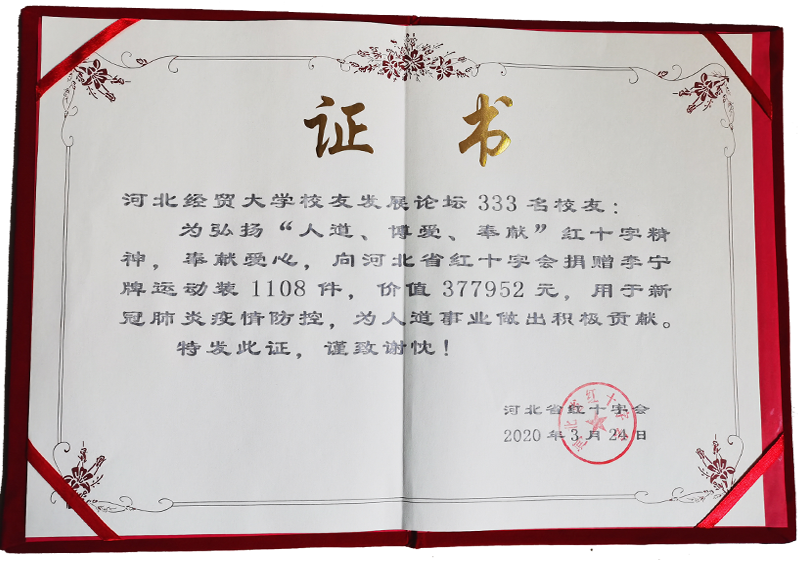 证 书
河北经贸大学校友发展论坛 333 名校友：
为弘扬“人道、博爱、奉献”红十字精
神，奉献爱心，向河北省红十字会捐赠李宁
牌运动装 1108 件，价值 377952 元，用于新
冠肺炎疫情防控，为人道事业做出积极贡献。
特发此证，谨致谢忱！
河北省红十字会
2020 年 3 月 24 日
河北省红十字会